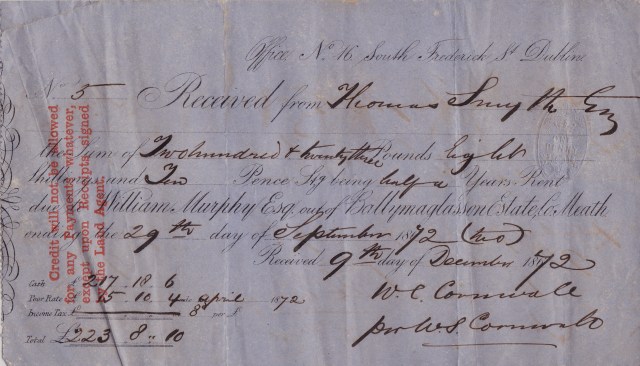 Office, No. 16 South Frederick St. Dublin
No. 5 Received from Thomas Smyth Esq
the Sum of Two hundred & twenty three Pounds Eight
Shillings and Ten Pence Stg being half a Years Rent
due William Murphy Esq. out of Ballymaglasson Estate, Co. Meath
ending the 29th day of September 1872 (two)
Received 9th day of December 1872
Cash £ 217 - 18 . 6
Poor Rate 5 - 10 . 4 is April 1872
Income Tax £ 8d per £
Total £223 . 8 " 10
W. C. Cornwall
per W S Cornwall
Credit will not be allowed
for any Payments whatever,
except upon Receipts, signed
the Land Agent.